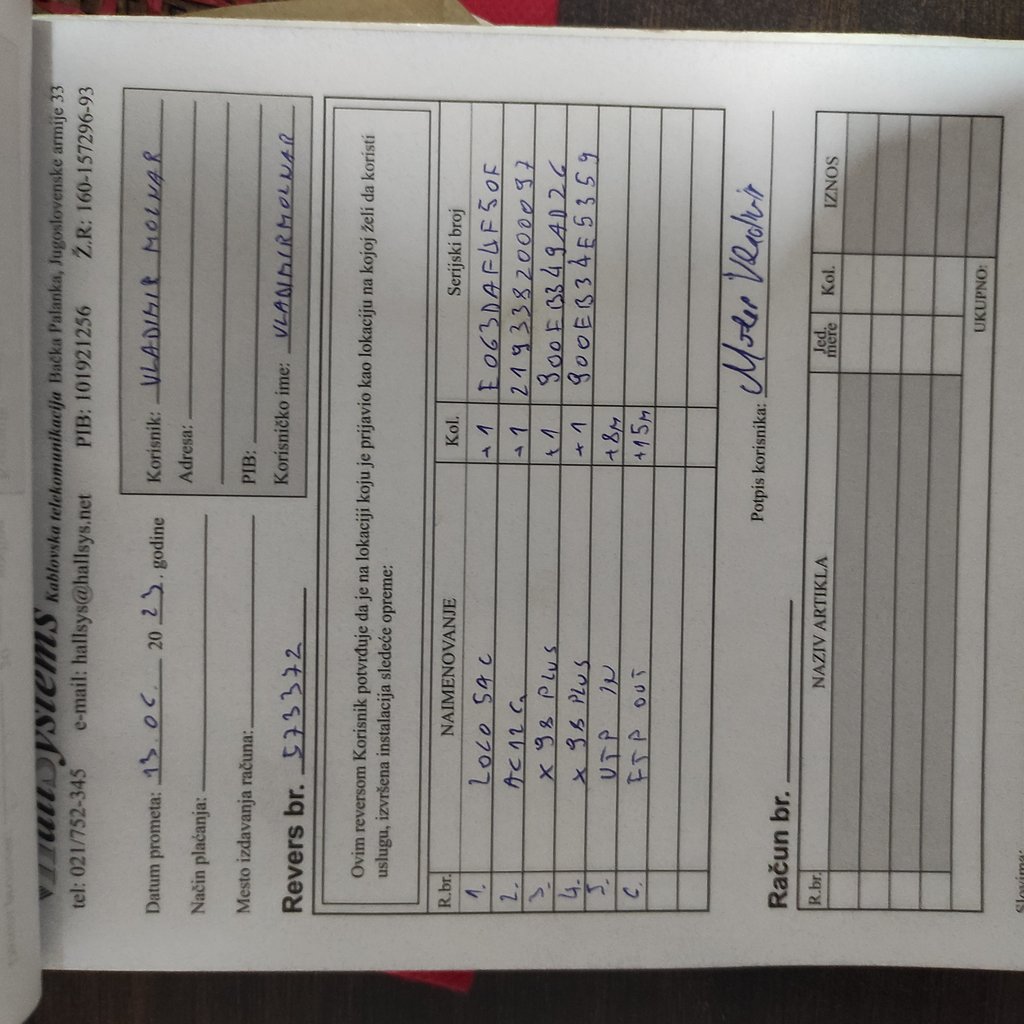 HallSystems Kablovska telekomunikacija Bačka Palanka, Jugoslovenske armije 33
tel: 021/752-345 e-mail: hallsys@hallsys.net PIB: 101921256 Ž.R: 160-157296-93
Datum prometa: 13.06. 20 23. godine
Način plaćanja:
Mesto izdavanja računa:
Korisnik: VLADIMIR MOLNAR
Adresa:
PIB:
Korisničko ime: VLADIMIRMOLNAR
Revers br. 573372
Ovim reversom Korisnik potvrđuje da je na lokaciji koju je prijavio kao lokaciju na kojoj želi da koristi
uslugu, izvršena instalacija sledeće opreme:
R.br. NAIMENOVANJE Kol. Serijski broj
1. LOCO 5AC +1 F063DAF4F50F
2. AC12G +1 2193382000097
3. X98 PLUS +1 900EB3494D26
4. X98 PLUS +1 900EB34E5359
5. UTP IN +8m
6. FTP OUT +15m
Potpis korisnika: Molnar Vladimir
Račun br.
R.br. NAZIV ARTIKLA Jed. mere Kol. IZNOS
UKUPNO: